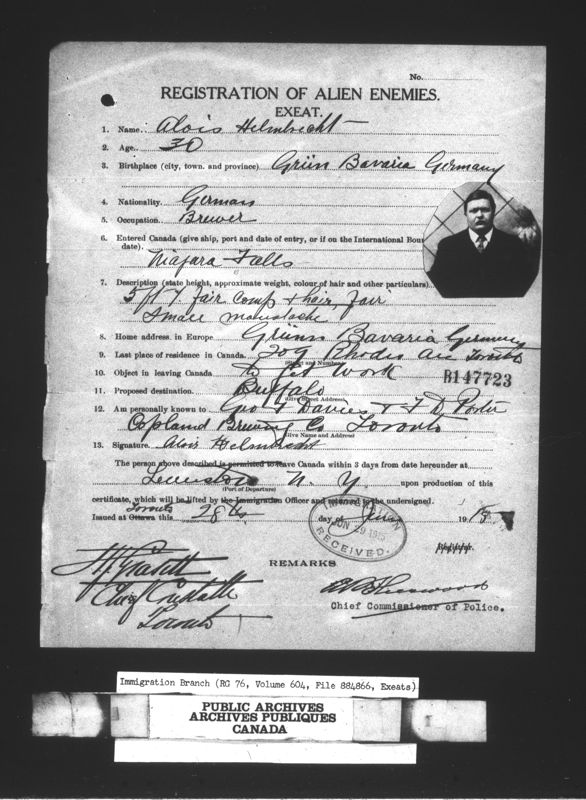 No.
REGISTRATION OF ALIEN ENEMIES.
EXEAT.
1. Name. Alois Helmbrecht
2. Age. 30
3. Birthplace (city, town, and province) Grün Bavaria Germany
4. Nationality. German
5. Occupation. Brewer
6. Entered Canada (give ship, port and date of entry, or if on the International Bou
date).
Niagara Falls
7. Description (state height, approximate weight, colour of hair and other particulars).
5 ft 7 fair comp & hair, fair
Small moustache
8. Home address in Europe Grünn Bavaria Germany
9. Last place of residence in Canada. 209 Rhodes Ave Toronto
(Street and Number)
10. Object in leaving Canada To get Work
B147723
11. Proposed destination. Buffalo
(Give Street Address)
12. Am personally known to Geo T Davies & F D Porter
Copland Brewing Co Toronto
(Give Name and Address)
13. Signature. Alois Helmbrecht
The person above described is permitted to leave Canada within 3 days from date hereunder at
Lewiston N. Y. upon production of this
(Port of Departure)
certificate, which will be lifted by the Immigration Officer and returned to the undersigned.
Toronto
Issued at Ottawa this 28th day of June 1915
IMMIGRATION
JUN 29 1915
RECEIVED.
Registrar.
REMARKS
Toronto
Chief Commissioner of Police.
Immigration Branch (RG 76, Volume 604, File 884866, Exeats)
PUBLIC ARCHIVES
ARCHIVES PUBLIQUES
CANADA